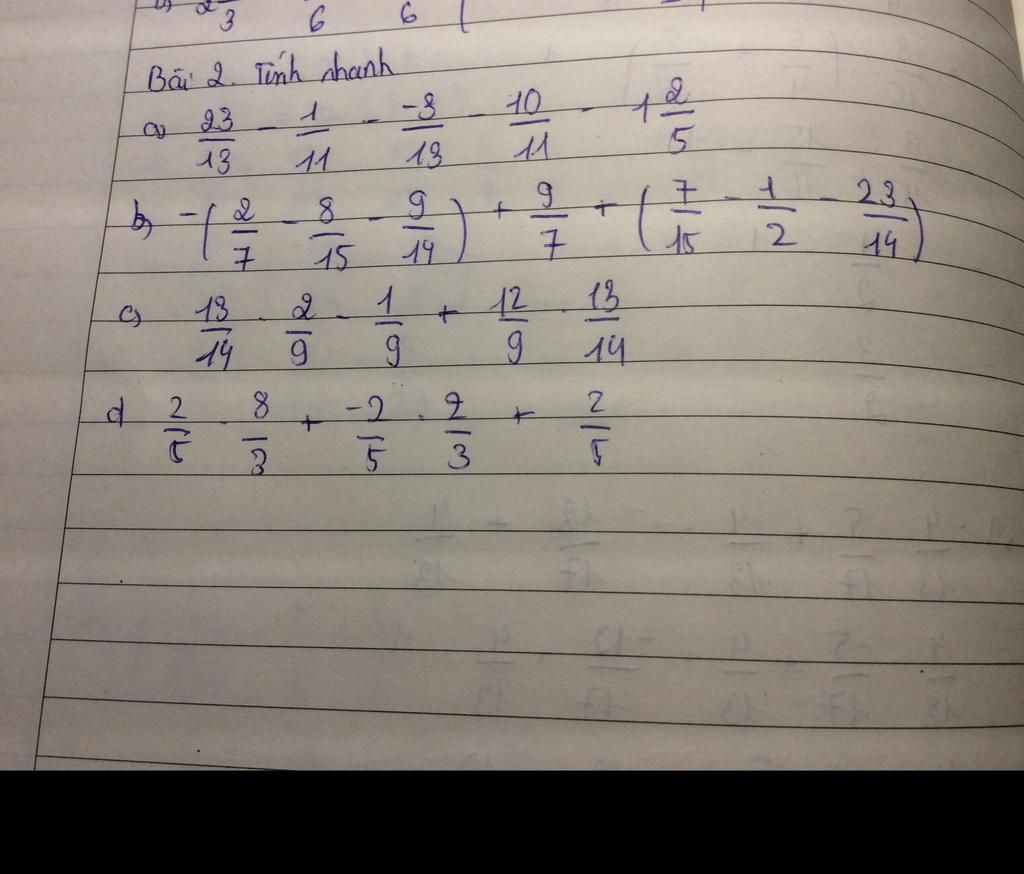 2 3 6 6 (
Bài 2. Tính nhanh
a) 23/13 - 1/11 - -3/13 - 10/11 - 1 2/5
b) -(2/7 - 8/15 - 9/14) + 9/7 + (7/15 - 1/2 - 23/14)
c) 13/14 . 2/9 - 1/9 + 12/9 . 13/14
d 2/5 . 8/3 + -2/5 . 2/3 + 2/5